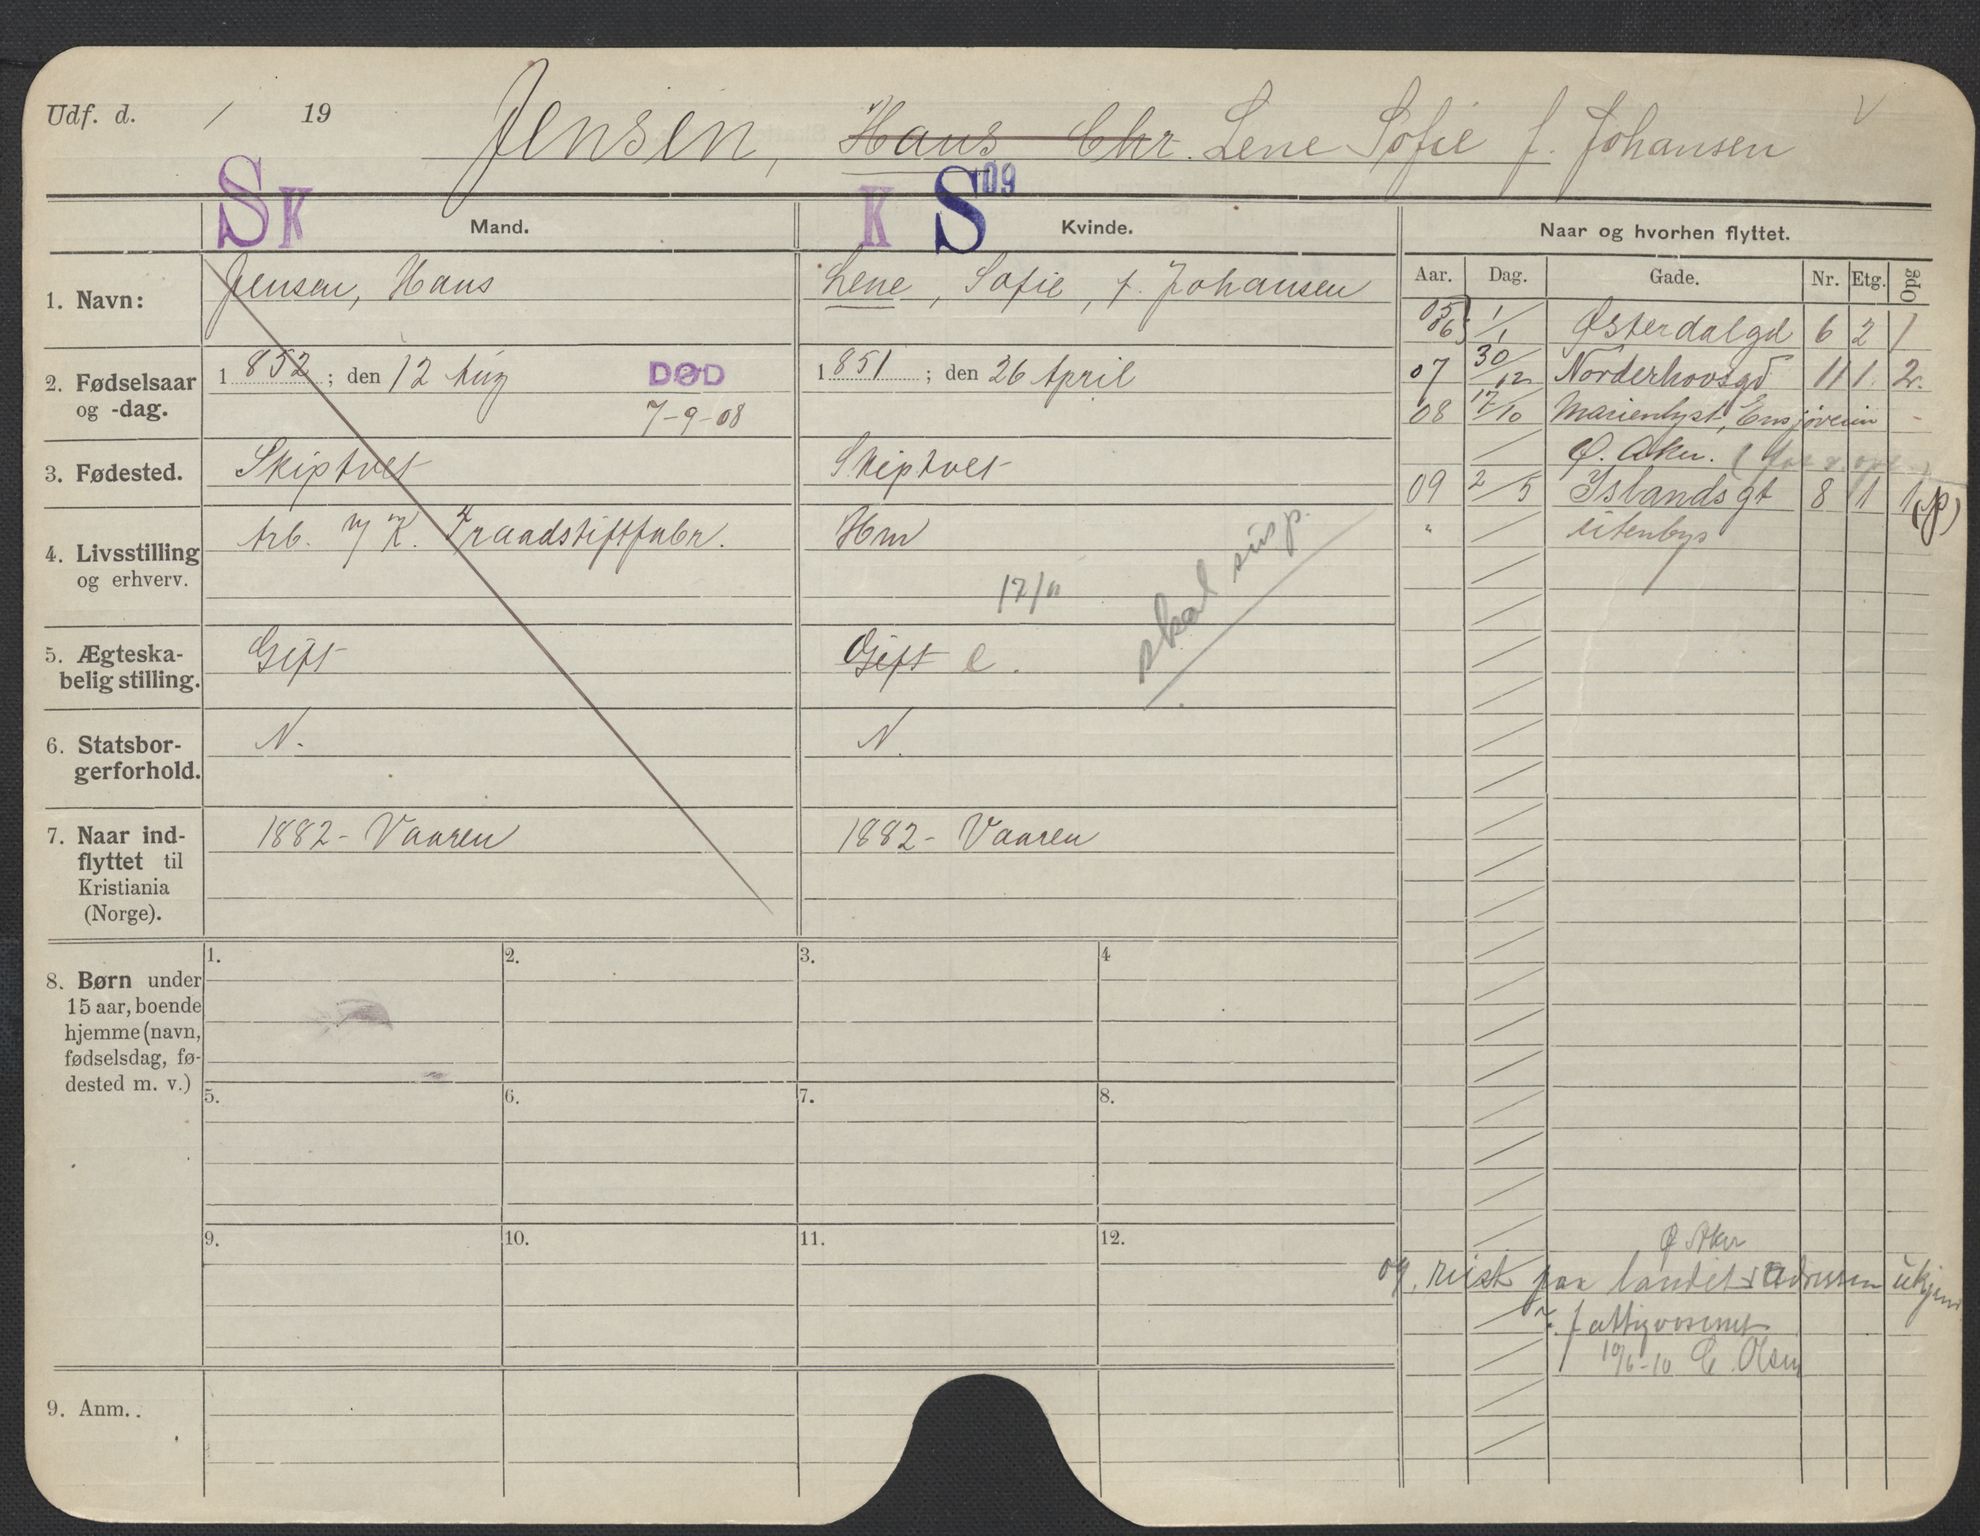 Udf. d. / 19
Jensen, Hans Chr. Lene Sofie f. Johansen
S K
K S 09
Mand.
Kvinde.
Naar og hvorhen flyttet.
Aar. Dag. Gade. Nr. Etg. Opg
1. Navn:
Jensen, Hans
Lene, Sofie, f. Johansen
2. Fødselsaar
og -dag.
1852; den 12 Aug
DØD
7-9-08
1851; den 26 April
3. Fødested.
Skiptvet
Skiptvet
4. Livsstilling
og erhverv.
Arb. v/ K. Traadstiftfabr.
Hm
skal
5. Ægteska-
belig stilling.
Gift
Gift e.
6. Statsbor-
gerforhold.
N.
N.
7. Naar ind-
flyttet til
Kristiania
(Norge).
1882 - Vaaren
1882 - Vaaren
8. Børn under
15 aar, boende
hjemme (navn,
fødselsdag, fø-
dested m. v.)
1. 2. 3. 4
5. 6. 7. 8.
9. 10. 11. 12.
9. Anm..
05
06 1/1 Østerdalgd 6 2 1
07 30/12 Norderhovsgd 11 1. 2.
08 17/10 Marienlyst, Ensjøveien -
Ø. Aker.
09 2/5 Islandsgt 8 1 1 (p)
" utenbys
Ø Aker
09. reist paa landet adressen ukjend
fattigvæsenet
10/6-10 C. Olsen